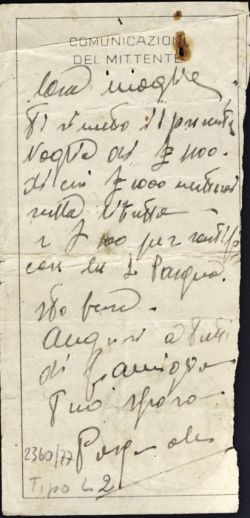 COMUNICAZIONI
DEL MITTENTE
Cara moglie
Ti rimetto il presente
Vaglia di £ 1100.
di cui £ 1000 metterai
sulla
e £ 100 per
con la S. Pasqua.
Sto bene.
Auguri a tutti
di famiglia
Tuo sposo.
Pasquale
2360/77
Tipo L2